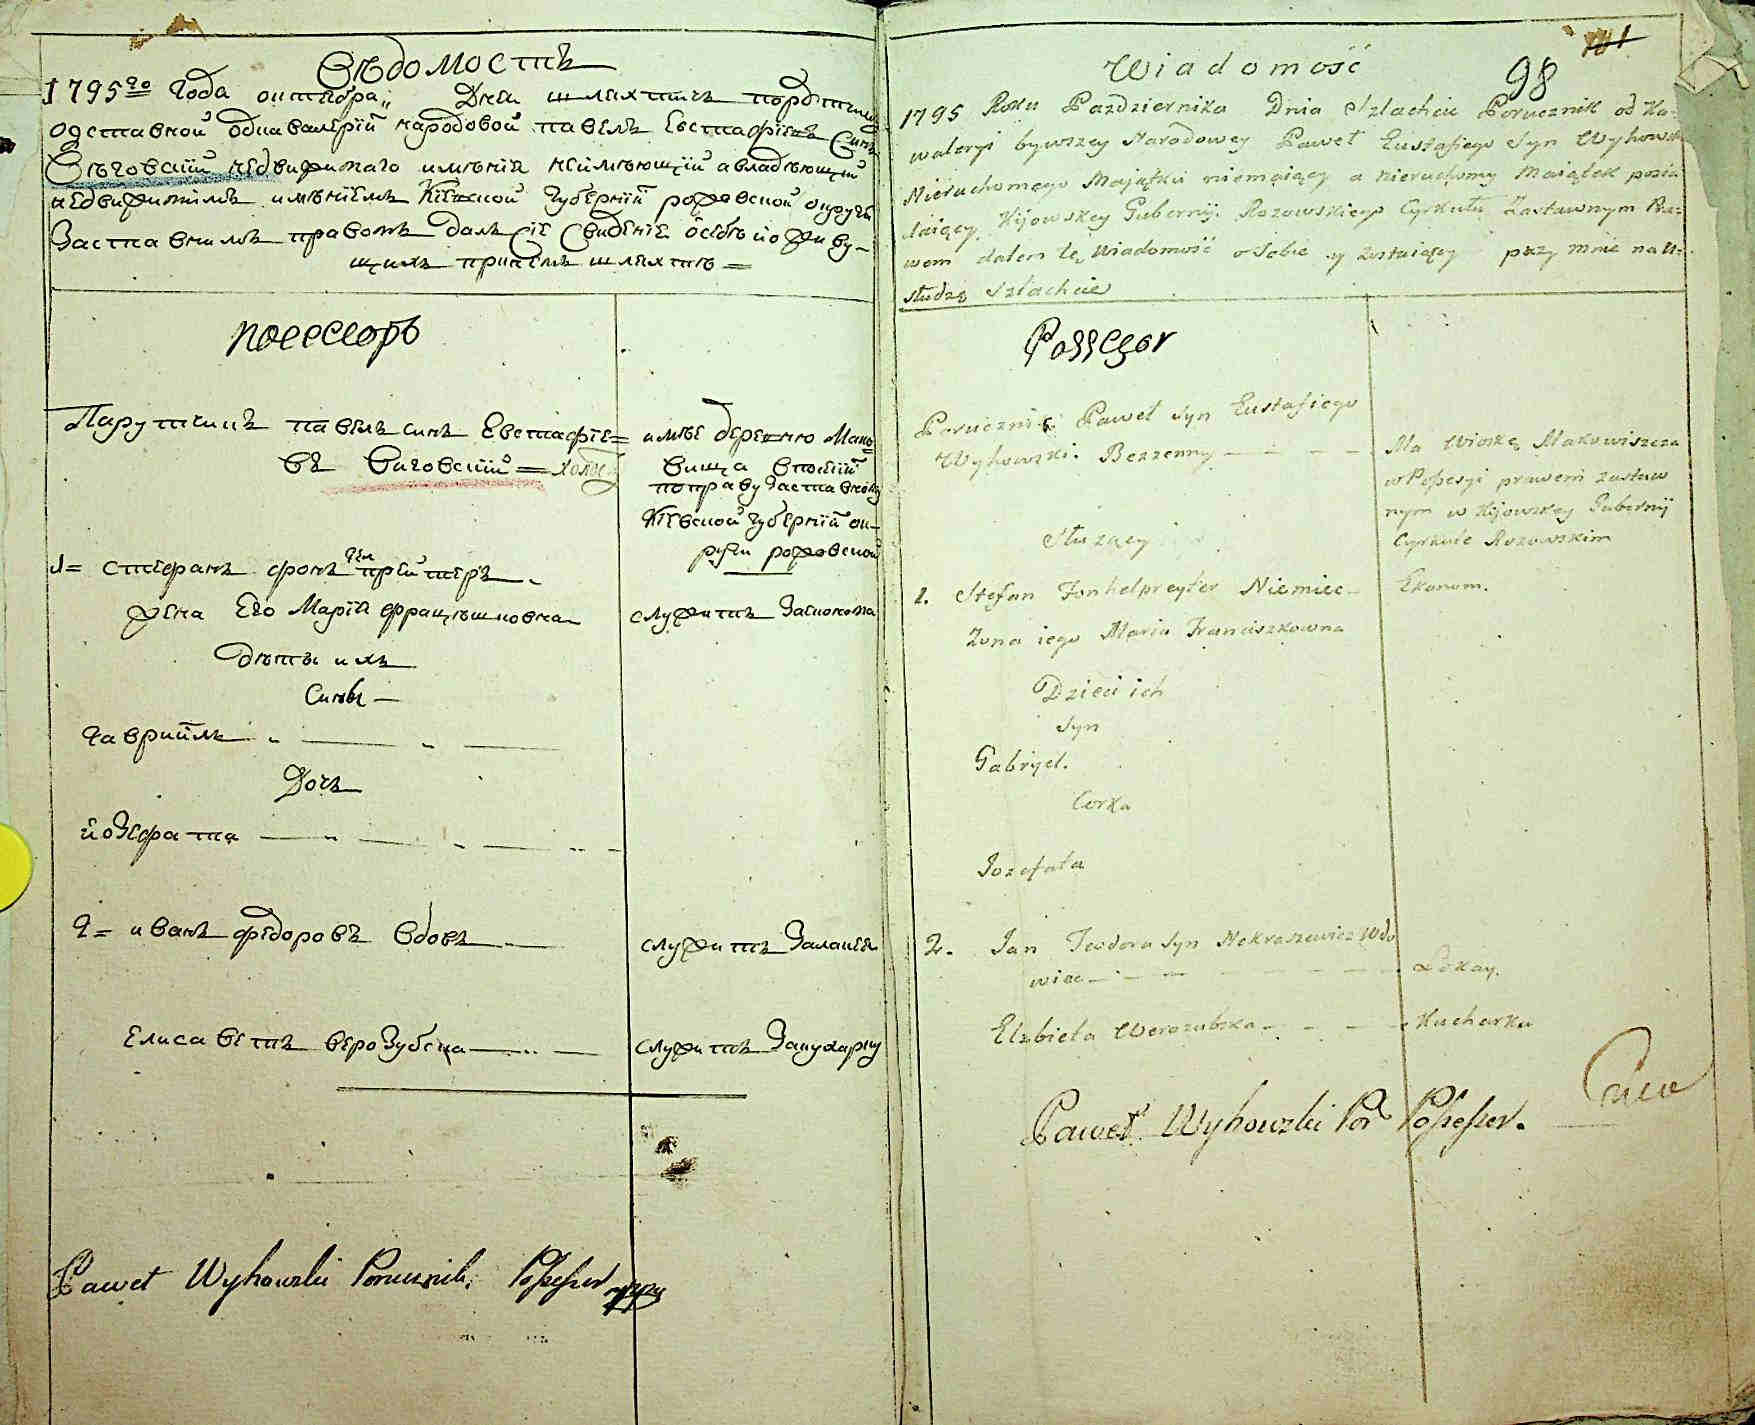 Вѣдомость
1795го года октября „ Дня шляхтичъ порутчикъ
одставной одкавалерїй народовой павелъ Евстафїевъ Синъ
Виговскїй недвижимаго имѣнїя неимѣющїй авладѣющїй
недвижимимъ имѣнїемъ Кїевской губернїй рожовской округи
Заставнимъ правомъ далъ сїе Свиденїе осебѣ йоживу-
щихъ примнѣ шляхтѣ =
посессоръ
Парутчикъ павелъ синъ Евстафїе=
въ Виговскїй = холи
имѣе деревню Мако
вища впосїй
поправу заставному
Кїевской губернїй ок-
руги рожовской
1= стефанъ фонъ гел прейтеръ
жена Его Марїя францѣшковна
служить Заекомома
дѣты ихъ
Синъ —
гаврийлъ
Дочъ
йозефата
2= иванъ федоровъ вдовъ
служить Залакея
Елисаветъ верозубска
служить Закухарку
Paweł Wyhowski Porucznik, Possessor mppa
Wiadomość
98
101
1795 Roku Pazdziernika Dnia Szlachcic Porucznik od Ka-
waleryi bywszey Narodowey Paweł Eustafiego Syn Wyhowski
Nieruchomego Majątku niemaiący a nieruchomy Maiątek posia
daiący Kijowskey Gubernij. Rozowskiego Cyrkułu Zastawnym Pra-
wem dałem tę Wiadomość o Sobie y zostaiącey przy mnie na U-
słudzę Szlachcie
Possesor
Porucznik Paweł Syn Eustafiego
Wyhowski. Bezzenny
Ma Wioskę Makowiszcza
w Possesyi prawem zastaw
nym w Kijowskey Gubernij
Cyrkule Rozowskim
Słuzący
1. Stefan Fonhelpreyter Niemiec
Ekonom.
Zona iego Maria Franciszkowna
Dzieci ich
Syn
Gabryel.
Corka
Jozefata
2. Jan Teodora Syn Nekraszewicz Wdo
wiec
Lokay.
Elzbieta Werozubska
Kucharka
Paweł Wyhowski Por Possessor.